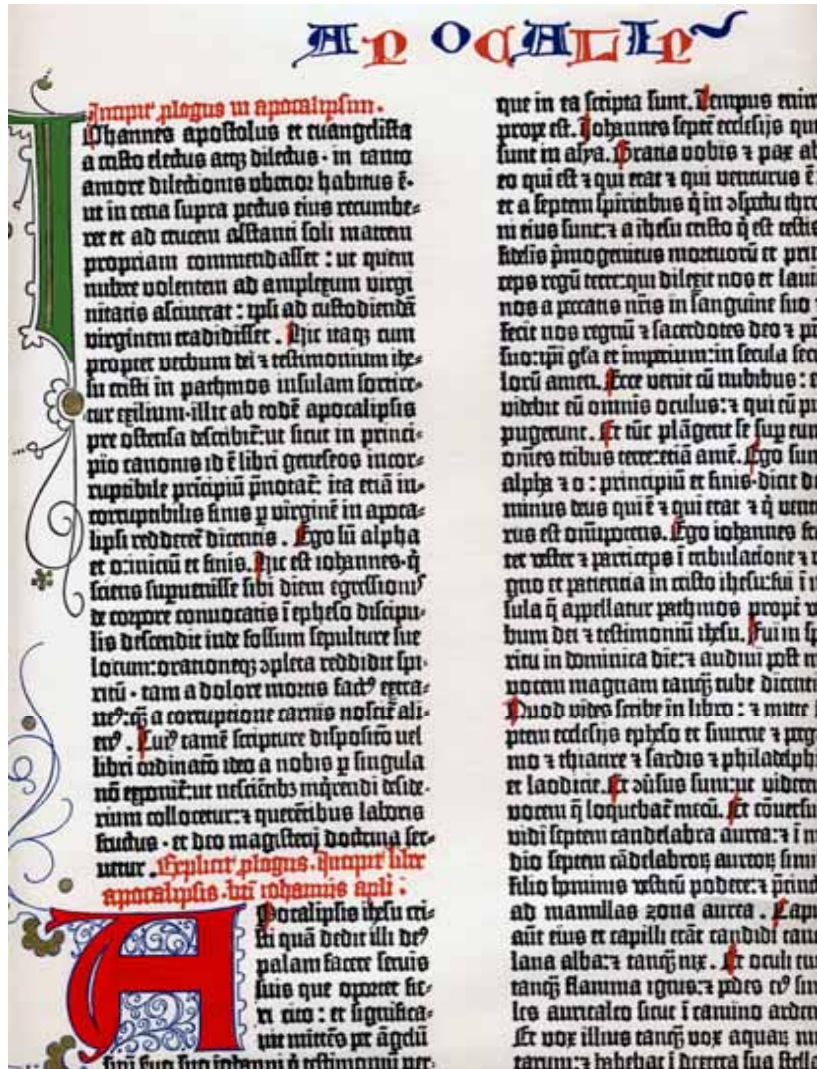 APOCALIPS
Incipit prologus in apocalipsim.
Iohannes apostolus et euangelista
a cristo electus atq3 dilectus · in tanto
amore dilectionis uberior habitus ē·
ut in cena supra pectus eius recumbe-
ret et ad crucem astanti soli matrem
propriam commendasset : ut quem
nubere volentem ad amplexum virgi
nitatis asciuerat : ipsi ad custodiendā
virginem tradidisset . Hic itaq3 cum
propter verbum dei ⁊ testimonium ihe-
su cristi in pathmos insulam sortire-
tur exilium·illic ab eodē apocalipsis
pre ostensa describit̄:ut sicut in princi-
pio canonis id ē libri geneseos incor-
ruptibile prīcipiū p̄notat̄: ita etiā in-
corruptibilis finis ꝑ virginē in apoca-
lipsi redderet̄ dicentis . Ego sū alpha
et o:iniciū et finis. Hic est iohannes·q̇
sciens supuenisse sibi diem egressionis
de corpore conuocatis ī epheso discipu-
lis descendit inde fossum sepulture sue
locum:orationeq3 ↄpleta reddidit spi-
ritū · tam a dolore mortis factꝰ extra-
neꝰ:q̄ a corruptione carnis noscit̄ ali-
enꝰ . Cuiꝰ tamē scripture disposicō vel
libri ordinacō ideo a nobis ꝑ singula
nō exponit̄:ut nesciētib3 inq̇rendi deside-
rium collocetur:⁊ querētibus laboris
fructus · et deo magisterij doctrina ser-
uetur . Explicit prologus. Incipit liber
apocalipsis · bti iohannis apli .
Apocalipsis ihesu cri-
sti quā dedit illi deꝰ
palam facere seruis
suis que oportet fie-
ri cito : et significa-
uit mittēs per āgelū
suū seruo suo iohanni q̇ testimoniū per-
que in ea scripta sunt. Tempus enim
prope est. Iohannes septē ecclesijs que
sunt in asya. Gratia vobis ⁊ pax ab
eo qui est ⁊ qui erat ⁊ qui venturus ē
et a septem spiritibus q̇ in ↄspectu thro
ni eius sunt:⁊ a ihesu cristo q̇ est testis
fidelis p̄mogenitus mortuorū et prin
ceps regū terre:qui dilexit nos et lauit
nos a peccatis nr̄is in sanguine suo ⁊
fecit nos regnū ⁊ sacerdotes deo ⁊ pr̄i
suo:ip̄i gl̄a et imperium:in secula secu
lorū amen. Ecce venit cū nubibus : et
videbit eū omnis oculus:⁊ qui eū pu
pugerunt. Et tūc plāgent se sup eum
om̄es tribus terre:etiā amē. Ego sum
alpha ⁊ o : principiū et finis·dicit do
minus deus qui ē ⁊ qui erat ⁊ q̇ ventu
rus est om̄ipotens. Ego iohannes fra
ter vester ⁊ particeps ī tribulacione ⁊ re
gno et patiencia in cristo ihesu:fui ī in
sula q̄ appellatur pathmos propt̄ ver
bum dei ⁊ testimoniū ihesu. Fui in spi
ritu in dominica die:⁊ audiui post me
vocem magnam tanq̄ tube dicentis
Quod vides scribe in libro : ⁊ mitte
ptem ecclesijs epheso et smirne ⁊ perga
mo ⁊ thiatire ⁊ sardis ⁊ philadelphie
et laodicie. Et ↄūsus sum:ut viderem
vocem q̄ loquebat̄ mecū. Et cōuersus
vidi septem candelabra aurea:⁊ ī me
dio septem cādelabrorꝝ aureorꝝ simile
filio hominis vestitū podere:⁊ p̄cinctū
ad mamillas zona aurea . Caput
aūt eius et capilli erāt candidi tanq̄
lana alba:⁊ tanq̄ nix . Et oculi eius
tanq̄ flamma ignis:⁊ pedes eiꝰ simi
les auricalco sicut ī camino ardenti
Et vox illius tanq̄ vox aquarꝝ mul
tarum:⁊ habebat ī dextera sua stellas